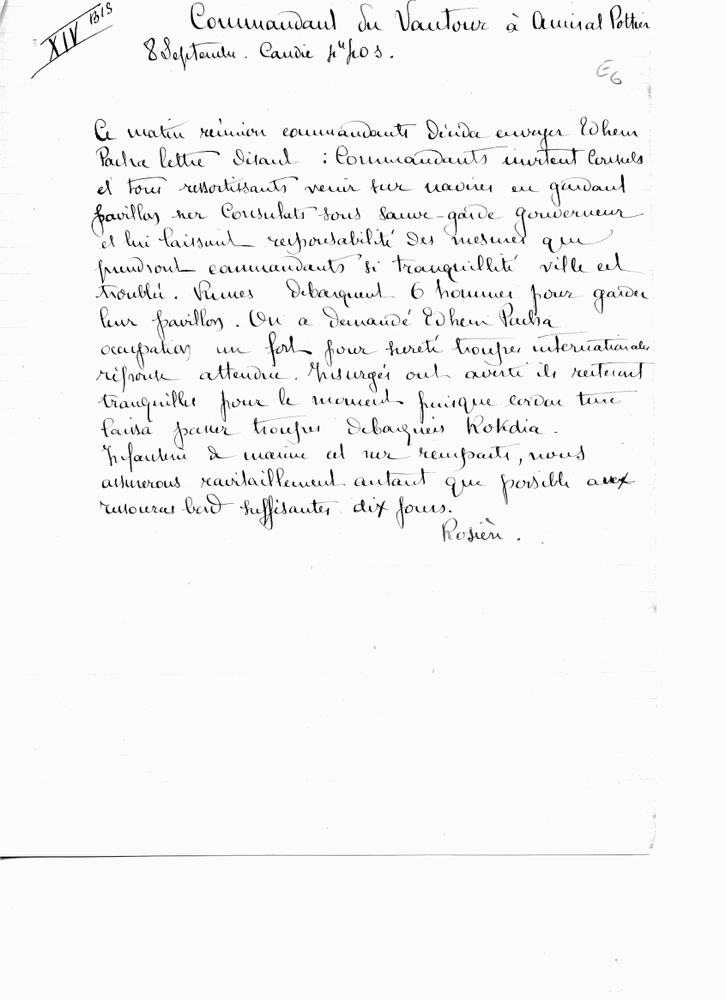 XIV bis
Commandant du Vautour à Amiral Pottier
8 Septembre. Candie
E6
Ce matin réunion commandants décida envoyer Edhem
Pacha lettre disant : Commandants invitent Consuls
et tous ressortissants venir sur navires en gardant
pavillon sur Consulats sous sauve-garde gouverneur
et lui laissant responsabilité des mesures que
prendront commandants si tranquillité ville est
troublée. Russes débarquent 6 hommes pour garder
leur pavillon. On a demandé Edhem Pacha
occupation un fort pour sureté troupes internationales
réponse attendue. Insurgés ont averti ils resteront
tranquilles pour le moment puisque cordon turc
laissa passer troupes débarquées Kokdia.
Infanterie de marine est sur remparts, nous
assurerons ravitaillement autant que possible avec
ressources bord suffisantes dix jours.
Rosière.